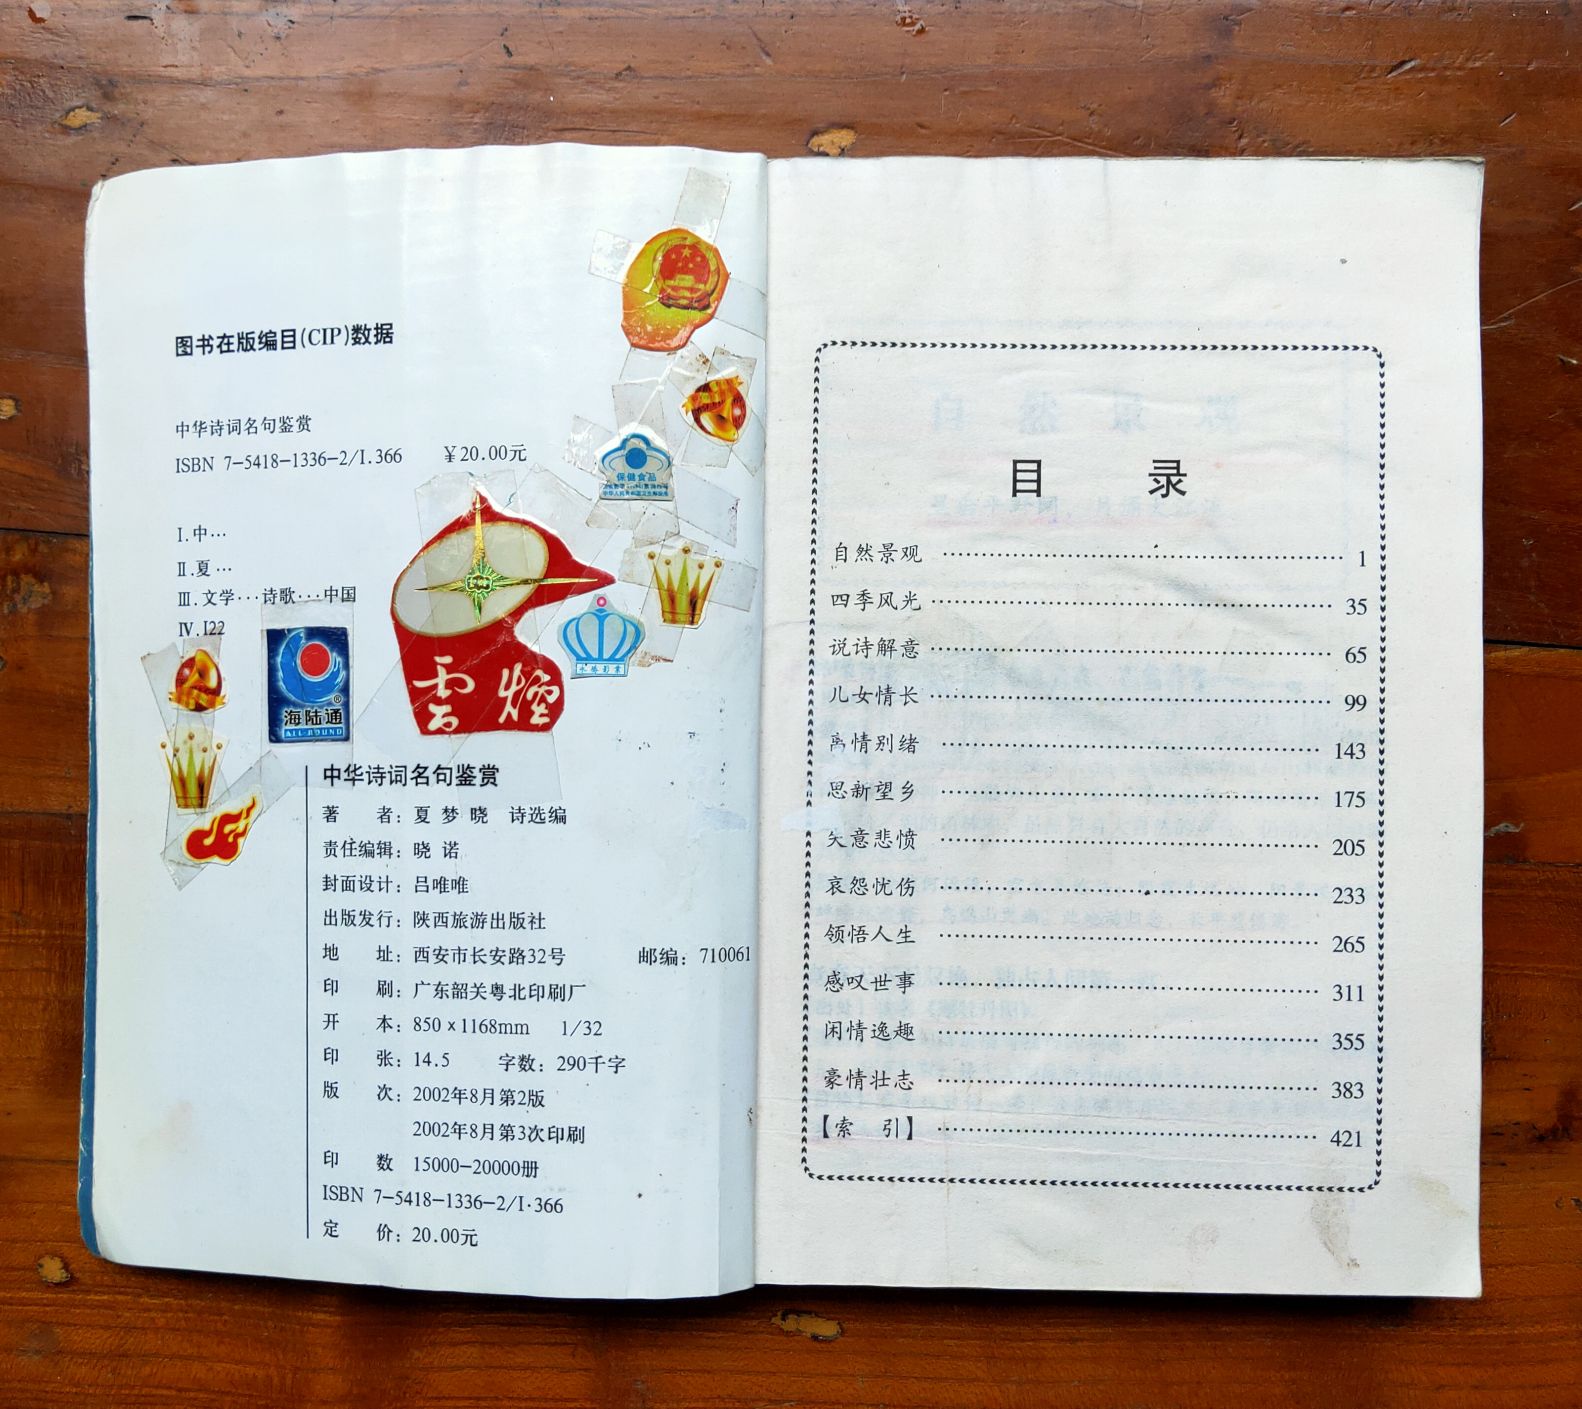 图书在版编目(CIP)数据
中华诗词名句鉴赏
ISBN 7-5418-1336-2/I.366 ￥20.00元
Ⅰ.中…
Ⅱ.夏…
Ⅲ.文学…诗歌…中国
Ⅳ.I22
保健食品
雲煙
海陆通®
ALL-ROUND
中华诗词名句鉴赏
著 者：夏 梦 晓 诗选编
责任编辑：晓 诺
封面设计：吕唯唯
出版发行：陕西旅游出版社
地 址：西安市长安路32号 邮编：710061
印 刷：广东韶关粤北印刷厂
开 本：850×1168mm 1/32
印 张：14.5 字数：290千字
版 次：2002年8月第2版
2002年8月第3次印刷
印 数 15000-20000册
ISBN 7-5418-1336-2/I·366
定 价：20.00元
目 录
自然景观 ………… 1
四季风光 ………… 35
说诗解意 ………… 65
儿女情长 ………… 99
离情别绪 ………… 143
思新望乡 ………… 175
失意悲愤 ………… 205
哀怨忧伤 ………… 233
领悟人生 ………… 265
感叹世事 ………… 311
闲情逸趣 ………… 355
豪情壮志 ………… 383
【索 引】 ………… 421